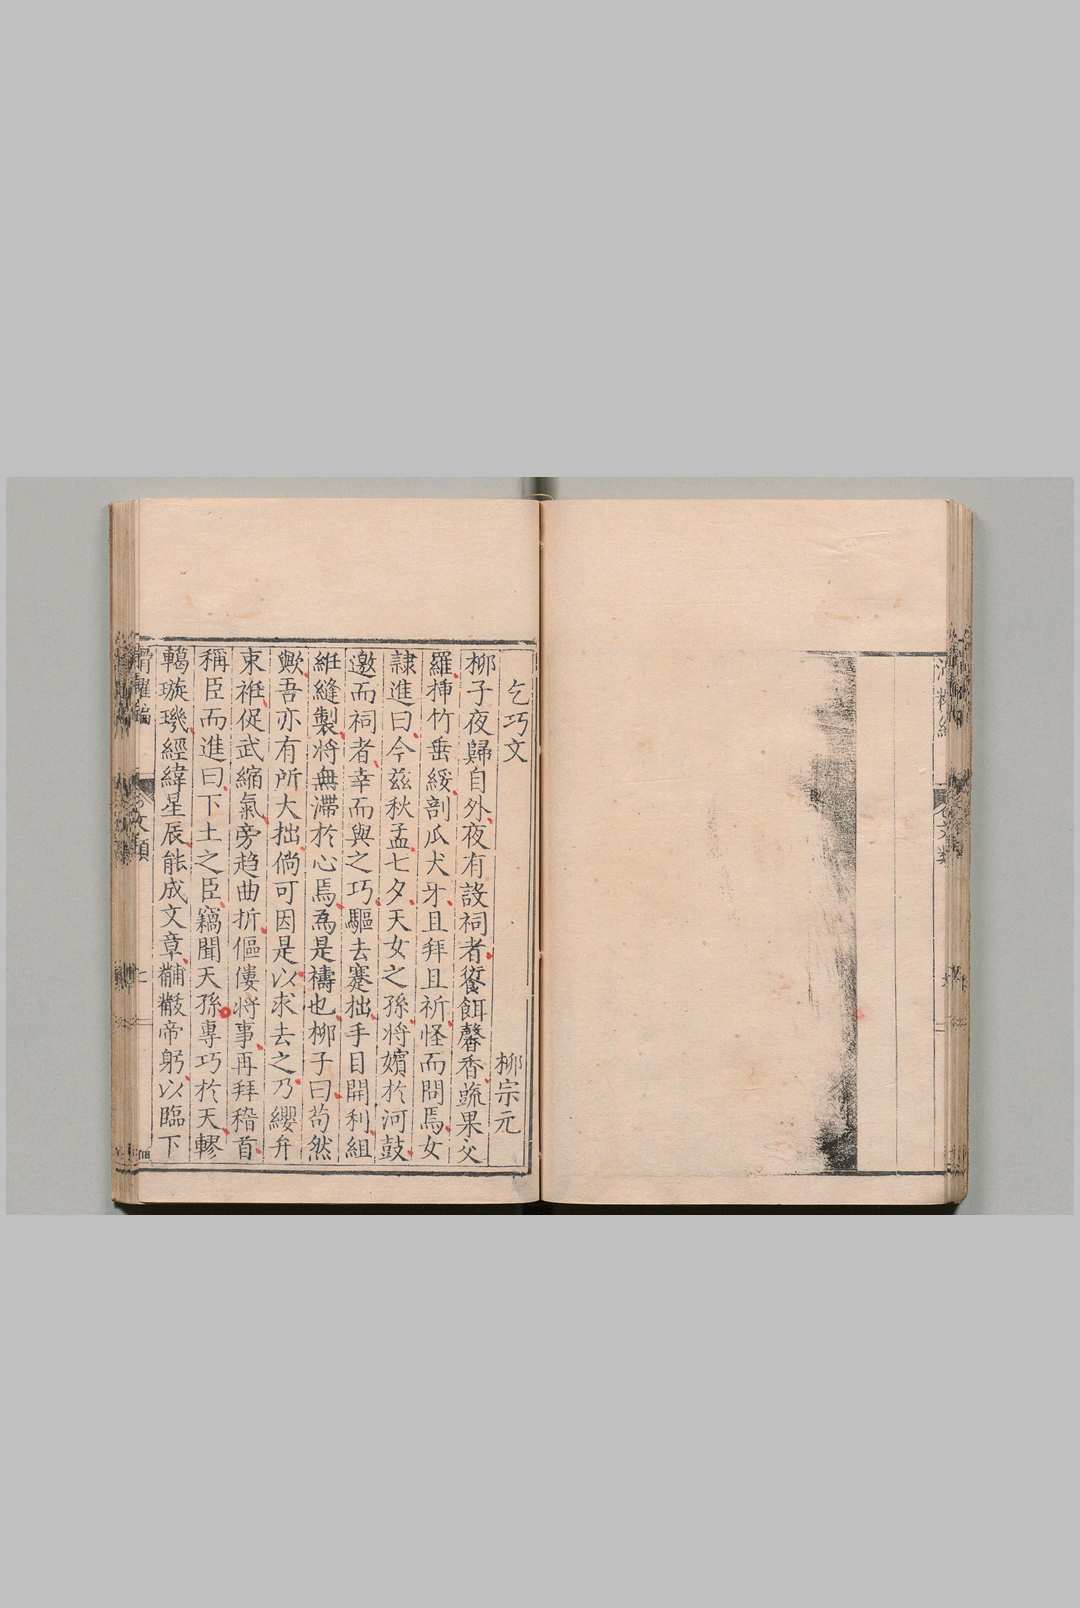 乞巧文
柳宗元
柳子夜歸自外夜有設祠者饘餌馨香蔬果交
羅揷竹垂綏剖瓜犬牙且拜且祈怪而問焉女
隷進曰今兹秋孟七夕天女之孫將嬪於河鼓
邀而祠者幸而與之巧驅去蹇拙手目開利組
絍縫製將無滯於心焉爲是禱也柳子曰茍然
歟吾亦有所大拙倘可因是以求去之乃纓弁
束袵促武縮氣旁趋曲折傴僂將事再拜稽首
稱臣而進曰下土之臣竊聞天孫專巧於天轇
轕璇璣經緯星辰能成文章黼黻帝躬以臨下
文類